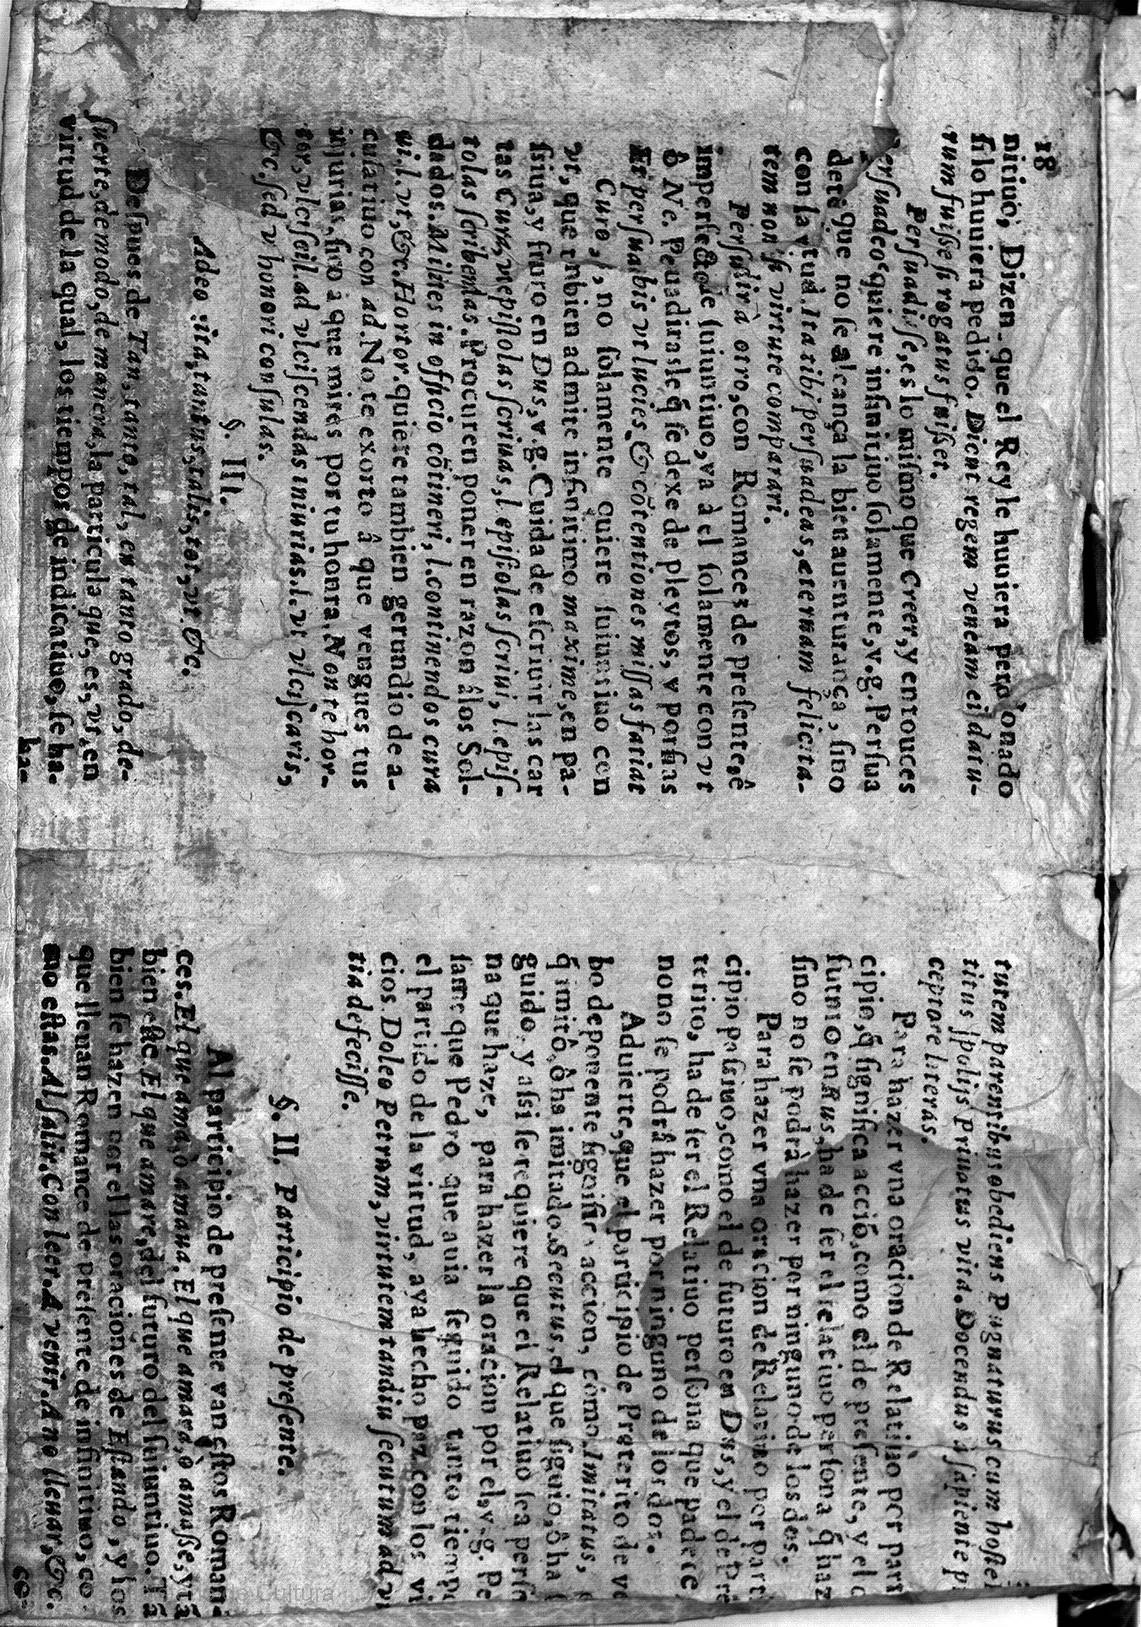 18
nitiuo, Dizen que el Rey le huuiera perdonado
si lo huuiera pedido. Dicut regem veneam ei datu-
rum fuisse si rogatus fuisset.
Persuadisse, es lo mismo que Creer, y entouces
Persuadeo quiere infinitiuo solamente, v.g. Persua
dete que no se alcança la bienauenturança, sino
con la vtud. Ita tibi persuadeas, eternam felicita-
tem non si virtute comparari.
Persuadir à otro, con Romances de presente, ê
imperfecto de suiuntiuo, va à el solamente con vt
ô Ne. Peuadirasle q̃ se dexe de pleytos, y porfias
Ei persuabis vt lucies & cõtentiones missas faciat
Curo, , no solamente quiere suiuntiuo con
vt, que tnbien admite infinitimo maxime, en pa-
ssiua, y fruro en Dus, v.g. Cuida de escriuir las car
tas Cura, vepistolas scriuas, l. epistolas scriui, l. epis-
tolas scribendas. Procuren poner en razon âlos Sol-
dados. Milites in officio cõtineri, l. continendos cura
vi. l. vt, &c. Hortor. quiere tambien gerundio de a-
cusatiuo con ad. No te exorto â que vengues tus
injurias, sino à que mires por tu honra. Non te hor-
tor, vlcisceril ad vlciscendas iniurias. l. vt vlciscaris,
&c. sed v honori consulas.
§. III.
Adeo, ita, tantus, talis, tot, vt. &c.
Despues de Tan, tanto, tal, en tanto grado, de-
suerte, de modo, de manera, la particula que, es, vt, en
virtud de la qual, los tiempos de indicatiuo, se ha-
ha-
turem parentibus obediens Pugnaturus cum hostei
titus spolijs Priuatus vita. Docendus à sapiente p
ceptore literas.
Para hazer vna oracion de Relatiuo por parti
cipio, q̃ significa acciõ, como el de presente, y el d
futuro en Rus, ha de ser el relatiuo persona q̃ haz
sino no se podrà hazer por ninguno de los dos.
Para hazer vna oracion de Relatiuo por parti
cipio passiuo, como el de futuro en Dus, y el de Pre
terito, ha de ser el Relatiuo persona que padece
nono se podrâ hazer por ninguno de los dos.
Aduierte, que el participio de Preterito de ve
bo deponente significa accion, como Imitatus,
q̃ imitô, ô ha imitado. Secutus, el que siguio, ô ha
guido y assi se requiere que el Relatiuo sea perso
na que haze, para hazer la oracion por el, v.g. Pe
same que Pedro que auia seguido tanto tiempo
el partido de la virtud, aya hecho paz con los vi
cios. Doleo Petrum, virtutem tandiu secutum ad, vi
tia defecisse.
§. II. Participio de presente.
Al participio de presente van estos Roman-
ces. El que ama, ò amaua. El que amarà, ò amasse, y tã
bien este. El que amare, del futuro del suiuntiuo. Tã
bien se hazen por el las oraciones de Estando, y los
que lleuan Romance de presente de infinitiuo, co-
mo estas. Al salir. Con leer. A venir. A no lleuar, &c.
co-